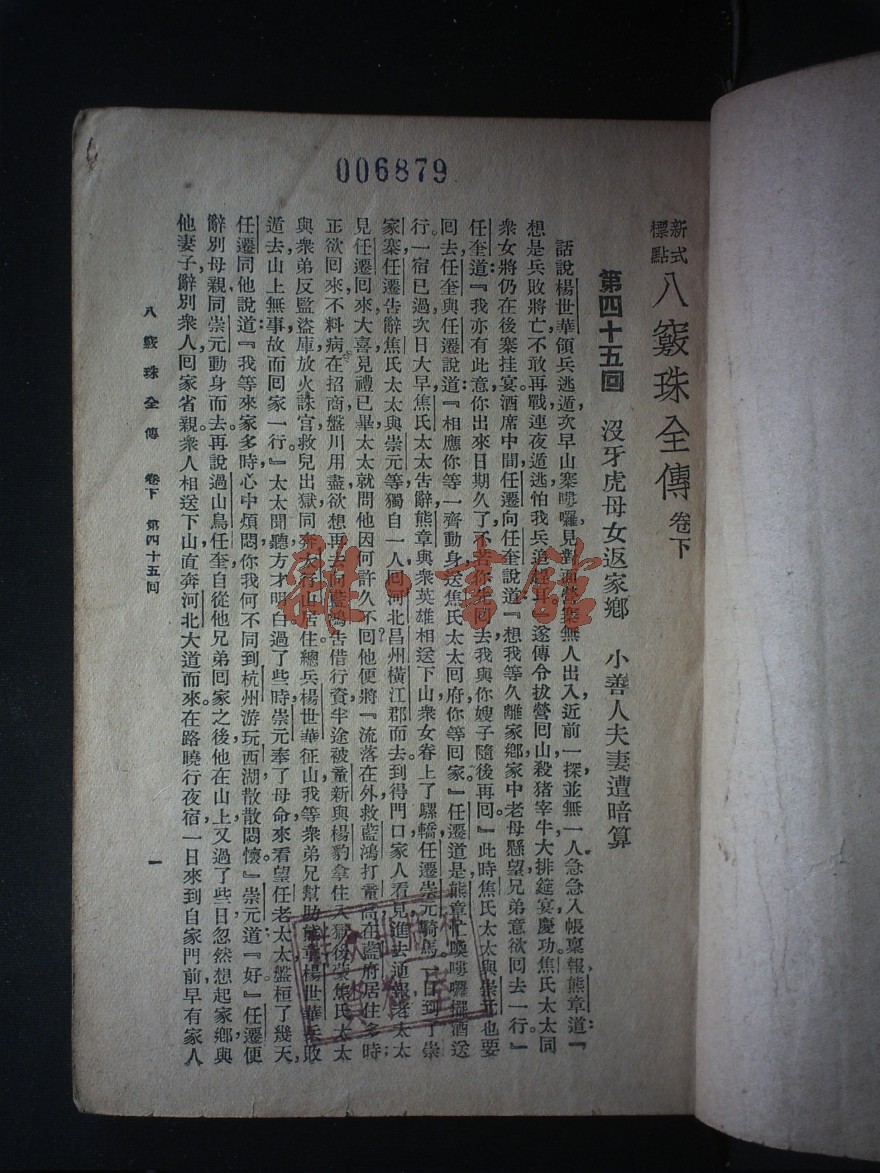 006879
新式標點 八竅珠全傳 卷下
第四十五回 沒牙虎母女返家鄉 小善人夫妻遭暗算
話說楊世華領兵逃遁次早山寨嘍囉見對面營寨無人出入近前一探並無一人急急入帳稟報熊章道：『
想是兵敗將亡不敢再戰連夜遁逃怕我兵追趕耳』遂傳令拔營回山殺猪宰牛大排筵宴慶功。焦氏太太同
衆女將仍在後寨挂宴。酒席中間任遷向任奎說道『想我等久離家鄉家中老母懸望兄弟意欲回去一行。』
任奎道：『我亦有此意你出來日期久了不若你先回去我與你嫂子隨後再回。』此時焦氏太太與崇元也要
回去任奎與任遷說道：『相應你等一齊動身送焦氏太太回府你等回家。』任遷道是熊章忙喚嘍囉擺酒送
行。一宿已過次日大早焦氏太太告辭熊章與衆英雄相送下山衆女眷上了騾轎任遷崇元騎馬一日到了崇
家寨任遷告辭焦氏太太與崇元等獨自一人回河北昌州橫江郡而去。到得門口家人看見進去通報老太太
見任遷回來大喜見禮已畢太太就問他因何許久不回他便將『流落在外救藍鴻打董高在藍府居住多時；
正欲回來不料病在招商盤川用盡欲想再去向藍鴻告借行資半途被董新與楊豹拿住入獄後蒙焦氏太太
與衆弟反監盜庫放火誅官救兒出獄同奔太行山居住總兵楊世華征山我等衆弟兄幫助熊章楊世華兵敗
遁去山上無事故而回家一行。』太太聞聽方才明白過了些時崇元奉了母命來看望任老太太盤桓了幾天，
任遷同他說道：『我等來家多時，心中煩悶你我何不同到杭州游玩西湖散散悶懷。』崇元道『好。』任遷便
辭別母親同崇元動身而去。再說過山鳥任奎自從他兄弟回家之後他在山上又過了些日忽然想起家鄉與
他妻子辭別衆人回家省親衆人相送下山直奔河北大道而來。在路曉行夜宿一日來到自家門前，早有家人
八竅珠全傳 卷下 第四十五回 一
雜·書館